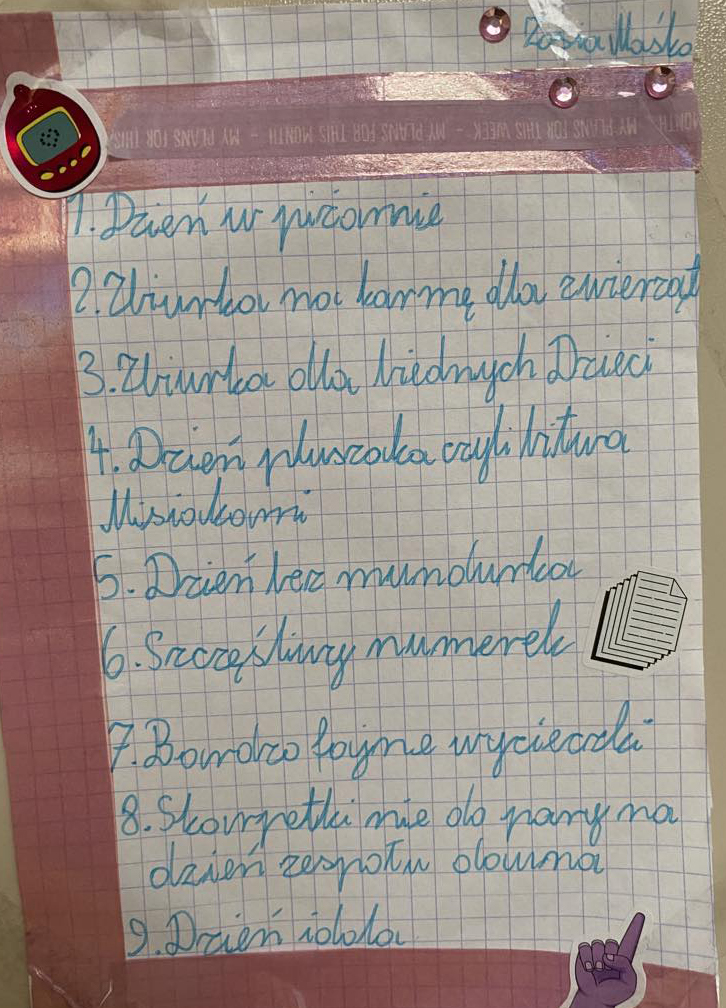 Zosia Maśko
MY PLANS FOR THIS WEEK - MY PLANS FOR THIS MONTH - MY PLANS FOR THIS
1. Dzień w piżamie
2. Zbiurka na karmę dla zwierząt
3. Zbiurka dla biednych Dzieci
4. Dzień pluszaka czyli bitwa
Misiakami
5. Dzień bez mundurka
6. Szczęśliwy numerek
7. Bardzo fajne wycieczki
8. Skarpetki nie do pary na
dzień zespołu dauna
9. Dzień idola